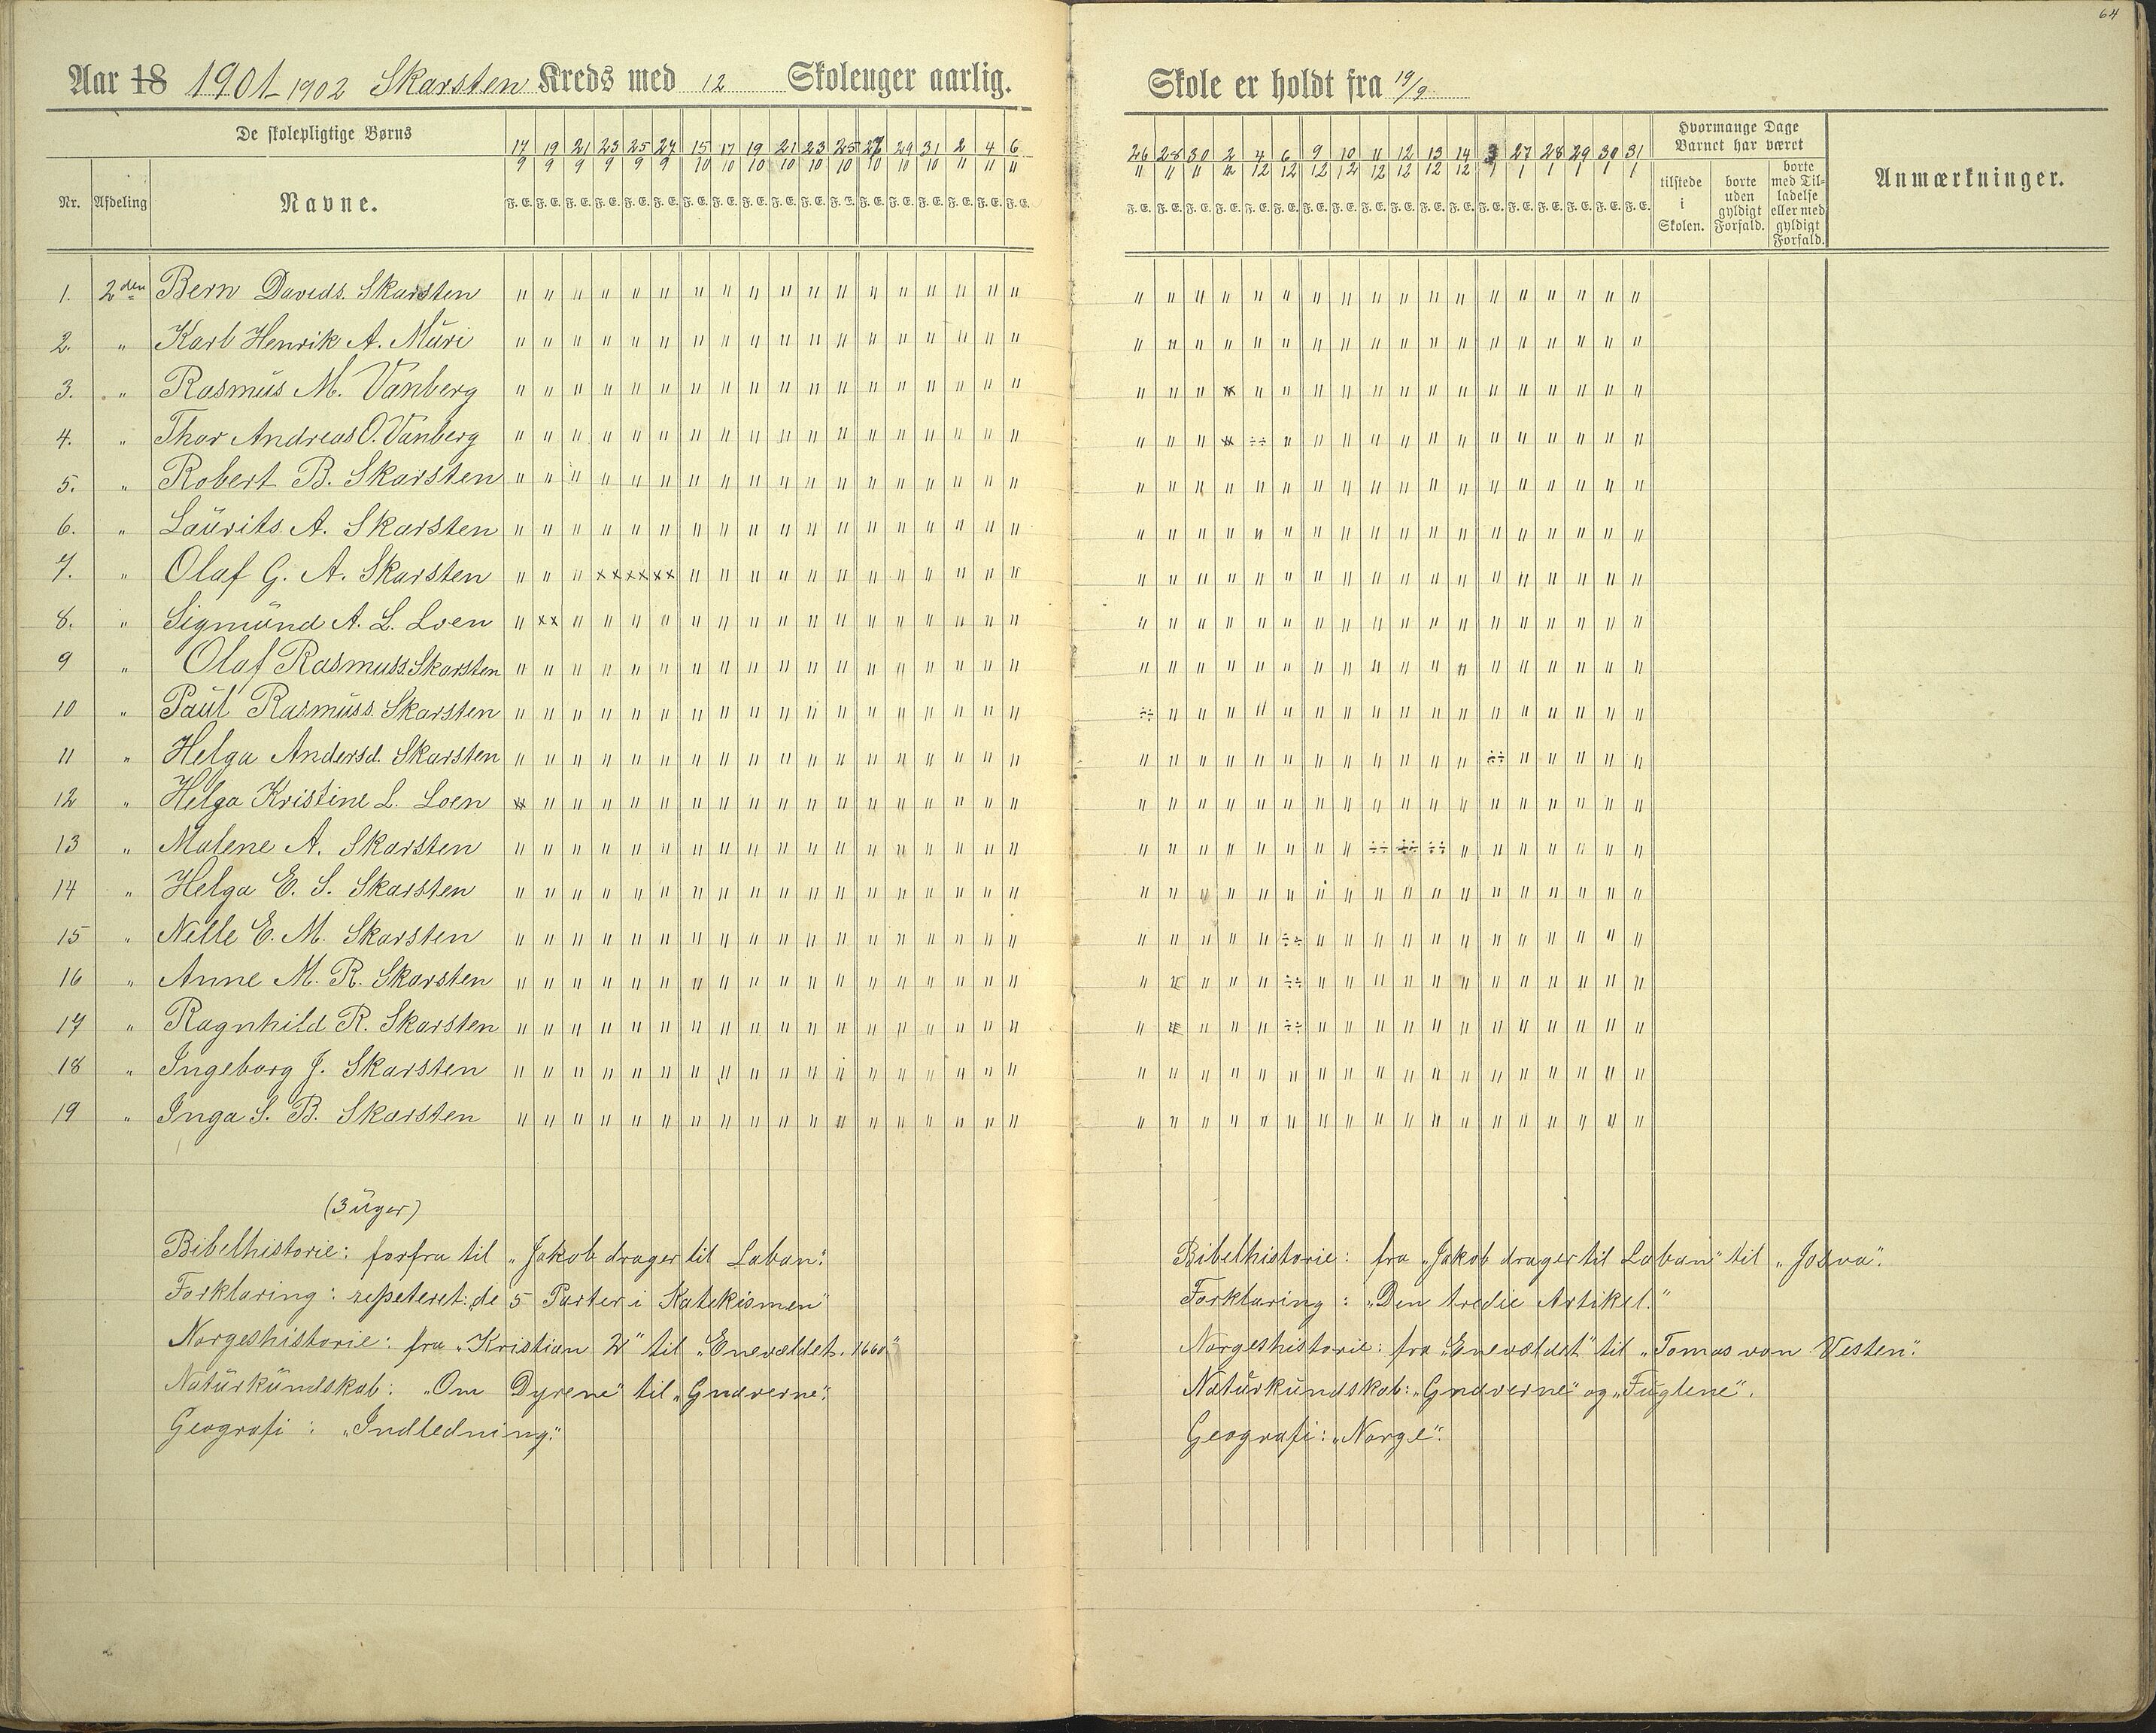 64
Aar 18 1901-1902 Skarsten Kreds med 12 Skoleuger aarlig.
De skolepligtige Børns
17 19 21 23 25 27 15 17 19 21 23 25 28 29 31 2 4 6
9 9 9 9 9 9 10 10 10 10 10 10 10 10 10 11 11 11
Nr. Afdeling Navne. F. E. F. E. F. E. F. E. F. E. F. E. F. E. F. E. F. E. F. E. F. E. F. E. F. E. F. E. F. E. F. E. F. E. F. E.
1. 2den Bern Davids. Skarsten " " " " " " " " " " " " " " " " " "
2. " Karl Henrik A. Muri " " " " " " " " " " " " " " " " " "
3. " Rasmus M. Vanberg " " " " " " " " " " " " " " " " " "
4. " Thor Andreas O. Vanberg " " " " " " " " " " " " " " " " " "
5. " Robert B. Skarsten " " " " " " " " " " " " " " " " " "
6. " Laurits A. Skarsten " " " " " " " " " " " " " " " " " "
7. " Olaf G. A. Skarsten " " " xx xx xx " " " " " " " " " " " "
8. " Sigmund A. L. Loen " xx " " " " " " " " " " " " " " " "
9 " Olaf Rasmuss. Skarsten " " " " " " " " " " " " " " " " " "
10 " Paul Rasmuss. Skarsten " " " " " " " " " " " " " " " " " "
11 " Helga Andersd. Skarsten " " " " " " " " " " " " " " " " " "
12 " Helga Kristine L. Loen " " " " " " " " " " " " " " " " "
13 " Malene A. Skarsten " " " " " " " " " " " " " " " " " "
14 " Helga E. S. Skarsten " " " " " " " " " " " " " " " " " "
15 " Nelle E. M. Skarsten " " " " " " " " " " " " " " " " " "
16 " Anne M. R. Skarsten " " " " " " " " " " " " " " " " " "
17 " Ragnhild R. Skarsten " " " " " " " " " " " " " " " " " "
18 " Ingeborg J. Skarsten " " " " " " " " " " " " " " " " " "
19 " Inga S. B. Skarsten " " " " " " " " " " " " " " " " " "
(3 uger)
Bibelhistorie: forfra til „Jakob drager til Laban".
Forklaring: repeteret: de 5 Parter i Katekismen"
Norgeshistorie: fra „Kristian 2" til „Enevældet. 1660"
Naturkundskab: „Om Dyrene" til „Gnaverne".
Geografi: „Indledning".
Skole er holdt fra 19/9
26 28 30 2 4 6 9 10 11 12 13 14 27 28 29 30 31
11 11 11 12 12 12 12 12 12 12 12 12 1 1 1 1 1 1
F. E. F. E. F. E. F. E. F. E. F. E. F. E. F. E. F. E. F. E. F. E. F. E. F. E. F. E. F. E. F. E. F. E. F. E.
Hvormange Dage
Barnet har været
tilstede
i
Skolen.
borte
uden
gyldigt
Forfald.
borte
med Til-
ladelse
eller med
gyldigt
Forfald.
Anmærkninger.
" " " " " " " " " " " " " " " " " "
" " " " " " " " " " " " " " " " " "
" " " " " " " " " " " " " " " " "
" " " ÷÷ " " " " " " " " " " " " "
" " " " " " " " " " " " " " " " " "
" " " " " " " " " " " " " " " " " "
" " " " " " " " " " " " " " " " " "
" " " " " " " " " " " " " " " " " "
" " " " " " " " " " " " " " " " " "
÷÷ " " " " " " " " " " " " " " " " "
" " " " " " " " " " " " ÷÷ " " " " "
" " " " " " " " " " " " " " " " " "
" " " " " " " " ÷÷ ÷÷ ÷÷ " " " " " " "
" " " " " " " " " " " " " " " " " "
" " " " " ÷÷ " " " " " " " " " " " "
" " " " ÷÷ " " " " " " " " " " " "
" " " " ÷÷ " " " " " " " " " " " "
" " " " " " " " " " " " " " " " " "
" " " " " " " " " " " " " " " " " "
Bibelhistorie: fra „Jakob drager til Laban" til „Josva".
Forklaring: „Den tredie Artikel."
Norgeshistorie: fra „Enevældet" til „Tomas von Vesten".
Naturkundskab: „Gnaverne" og „Fuglene".
Geografi: „Norge".